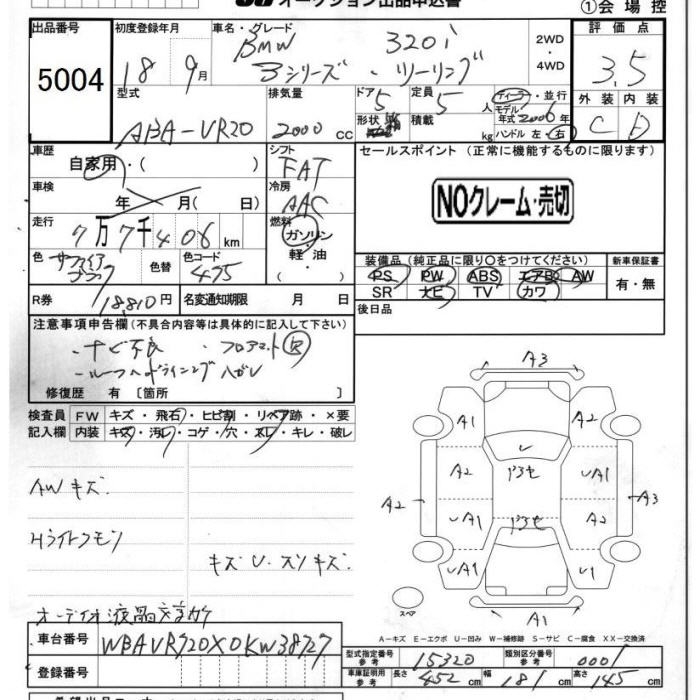 オークション出品申込書
①会場控
出品番号
5004
初度登録年月
18 9月
車名・グレード
BMW 320i
3シリーズ・ツーリング
2WD
・4WD
評価点
3.5
外装 内装
C D
型式
ABA-VR20
排気量
2000 cc
ドア
5
形状
定員
5人
積載
kg
ディーラー・並行
モデル年式 2006年
ハンドル 左・右
車歴
自家用・( )
シフト
FAT
セールスポイント (正常に機能するものに限ります)
NOクレーム・売切
車検
年 月( 日)
冷房
AAC
走行
7万7千406km
燃料
ガソリン
軽・油
( )
色
サファイアブラック
色替
色コード
475
装備品 (純正品に限り○をつけてください)
PS PW ABS エアB AW
SR ナビ TV カワ
新車保証書
有・無
R券
18,810円
名変通知期限 月 日
後日品
注意事項申告欄 (不具合内容等は具体的に記入して下さい)
・ナビ不良 ・フロアマット欠
・ルーフヘッドライニングハガレ
修復歴 有 〔箇所 〕
検査員 FW キズ・飛石・ヒビ割・リペア跡・×要
記入欄 内装 キズ・汚レ・コゲ・穴・スレ・キレ・破レ
AWキズ
Hライトクモリ
キズU・スリキズ
A3
A1 A2
A2 UA1
A2 A3
UA1 A2
UA1 U1
A1
スペア
A-キズ E-エクボ U-凹み W-補修跡 S-サビ C-腐食 XX-交換済
車台番号
WBAVR720X0KW38727
登録番号
型式指定番号 参考 15320
類別区分番号 参考 0001
車庫証明用 参考 長さ 452cm 幅 181cm 高さ 145cm